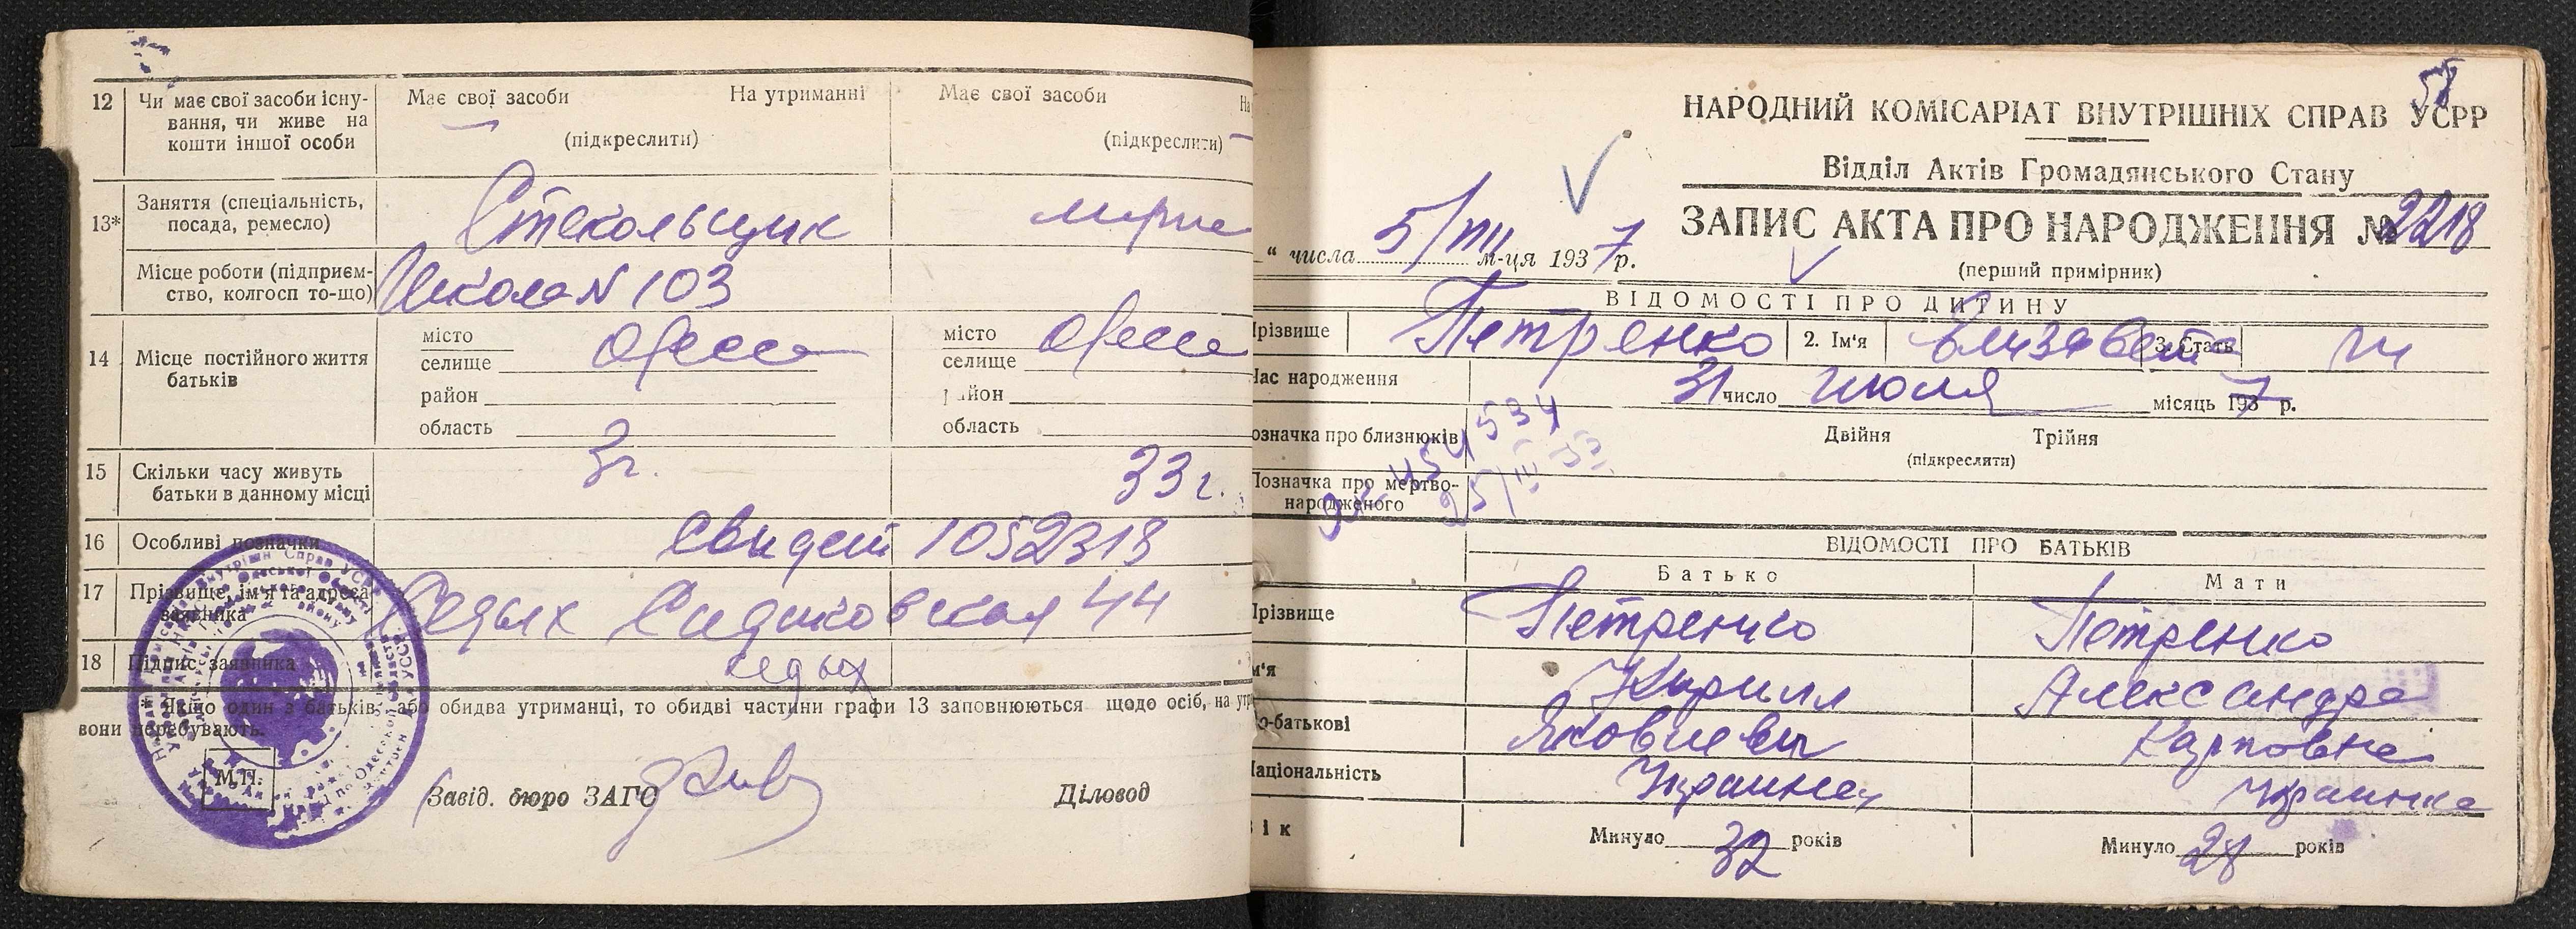 12 Чи має свої засоби існу-
вання, чи живе на
кошти іншої особи
Має свої засоби На утриманні
(підкреслити)
Має свої засоби На
(підкреслити)
13* Заняття (спеціальність,
посада, ремесло)
Стекольщик
Місце роботи (підприєм-
ство, колгосп то-що)
Школа N 103
14 Місце постійного життя
батьків
місто
селище Одесса
район
область
місто
селище Одесса
район
область
15 Скільки часу живуть
батьки в данному місці
3г. 33 г.
16 Особливі позначки
Свидет 1052318
17 Прізвище, ім'я та адреса
заявника
Седых 44
18 Підпис заявника
Седых
Якщо один з батьків, або обидва утриманці, то обидві частини графи 13 заповнюються щодо осіб, на
вони перебувають.
М.П.
Завід. бюро ЗАГС Діловод
58
НАРОДНИЙ КОМІСАРІАТ ВНУТРІШНІХ СПРАВ УСРР
Відділ Актів Громадянського Стану
ЗАПИС АКТА ПРО НАРОДЖЕННЯ № 2218
(перший примірник)
" числа 5/VIII м-ця 1937 р.
ВІДОМОСТІ ПРО ДИТИНУ
Прізвище Петренко 2. Ім'я Елизавета 3. Стать
Час народження 31 число июля місяць 1937 р.
означка про близнюків Двійня Трійня
(підкреслити)
Позначка про мертво-
народженого
454534
25/III 53
ВІДОМОСТІ ПРО БАТЬКІВ
Батько Мати
Прізвище Петренко Петренко
м'я Кирилл Александра
о-батькові Яковлевич Карповна
аціональність Украинец Украинка
ік Минуло 32 років Минуло 28 років